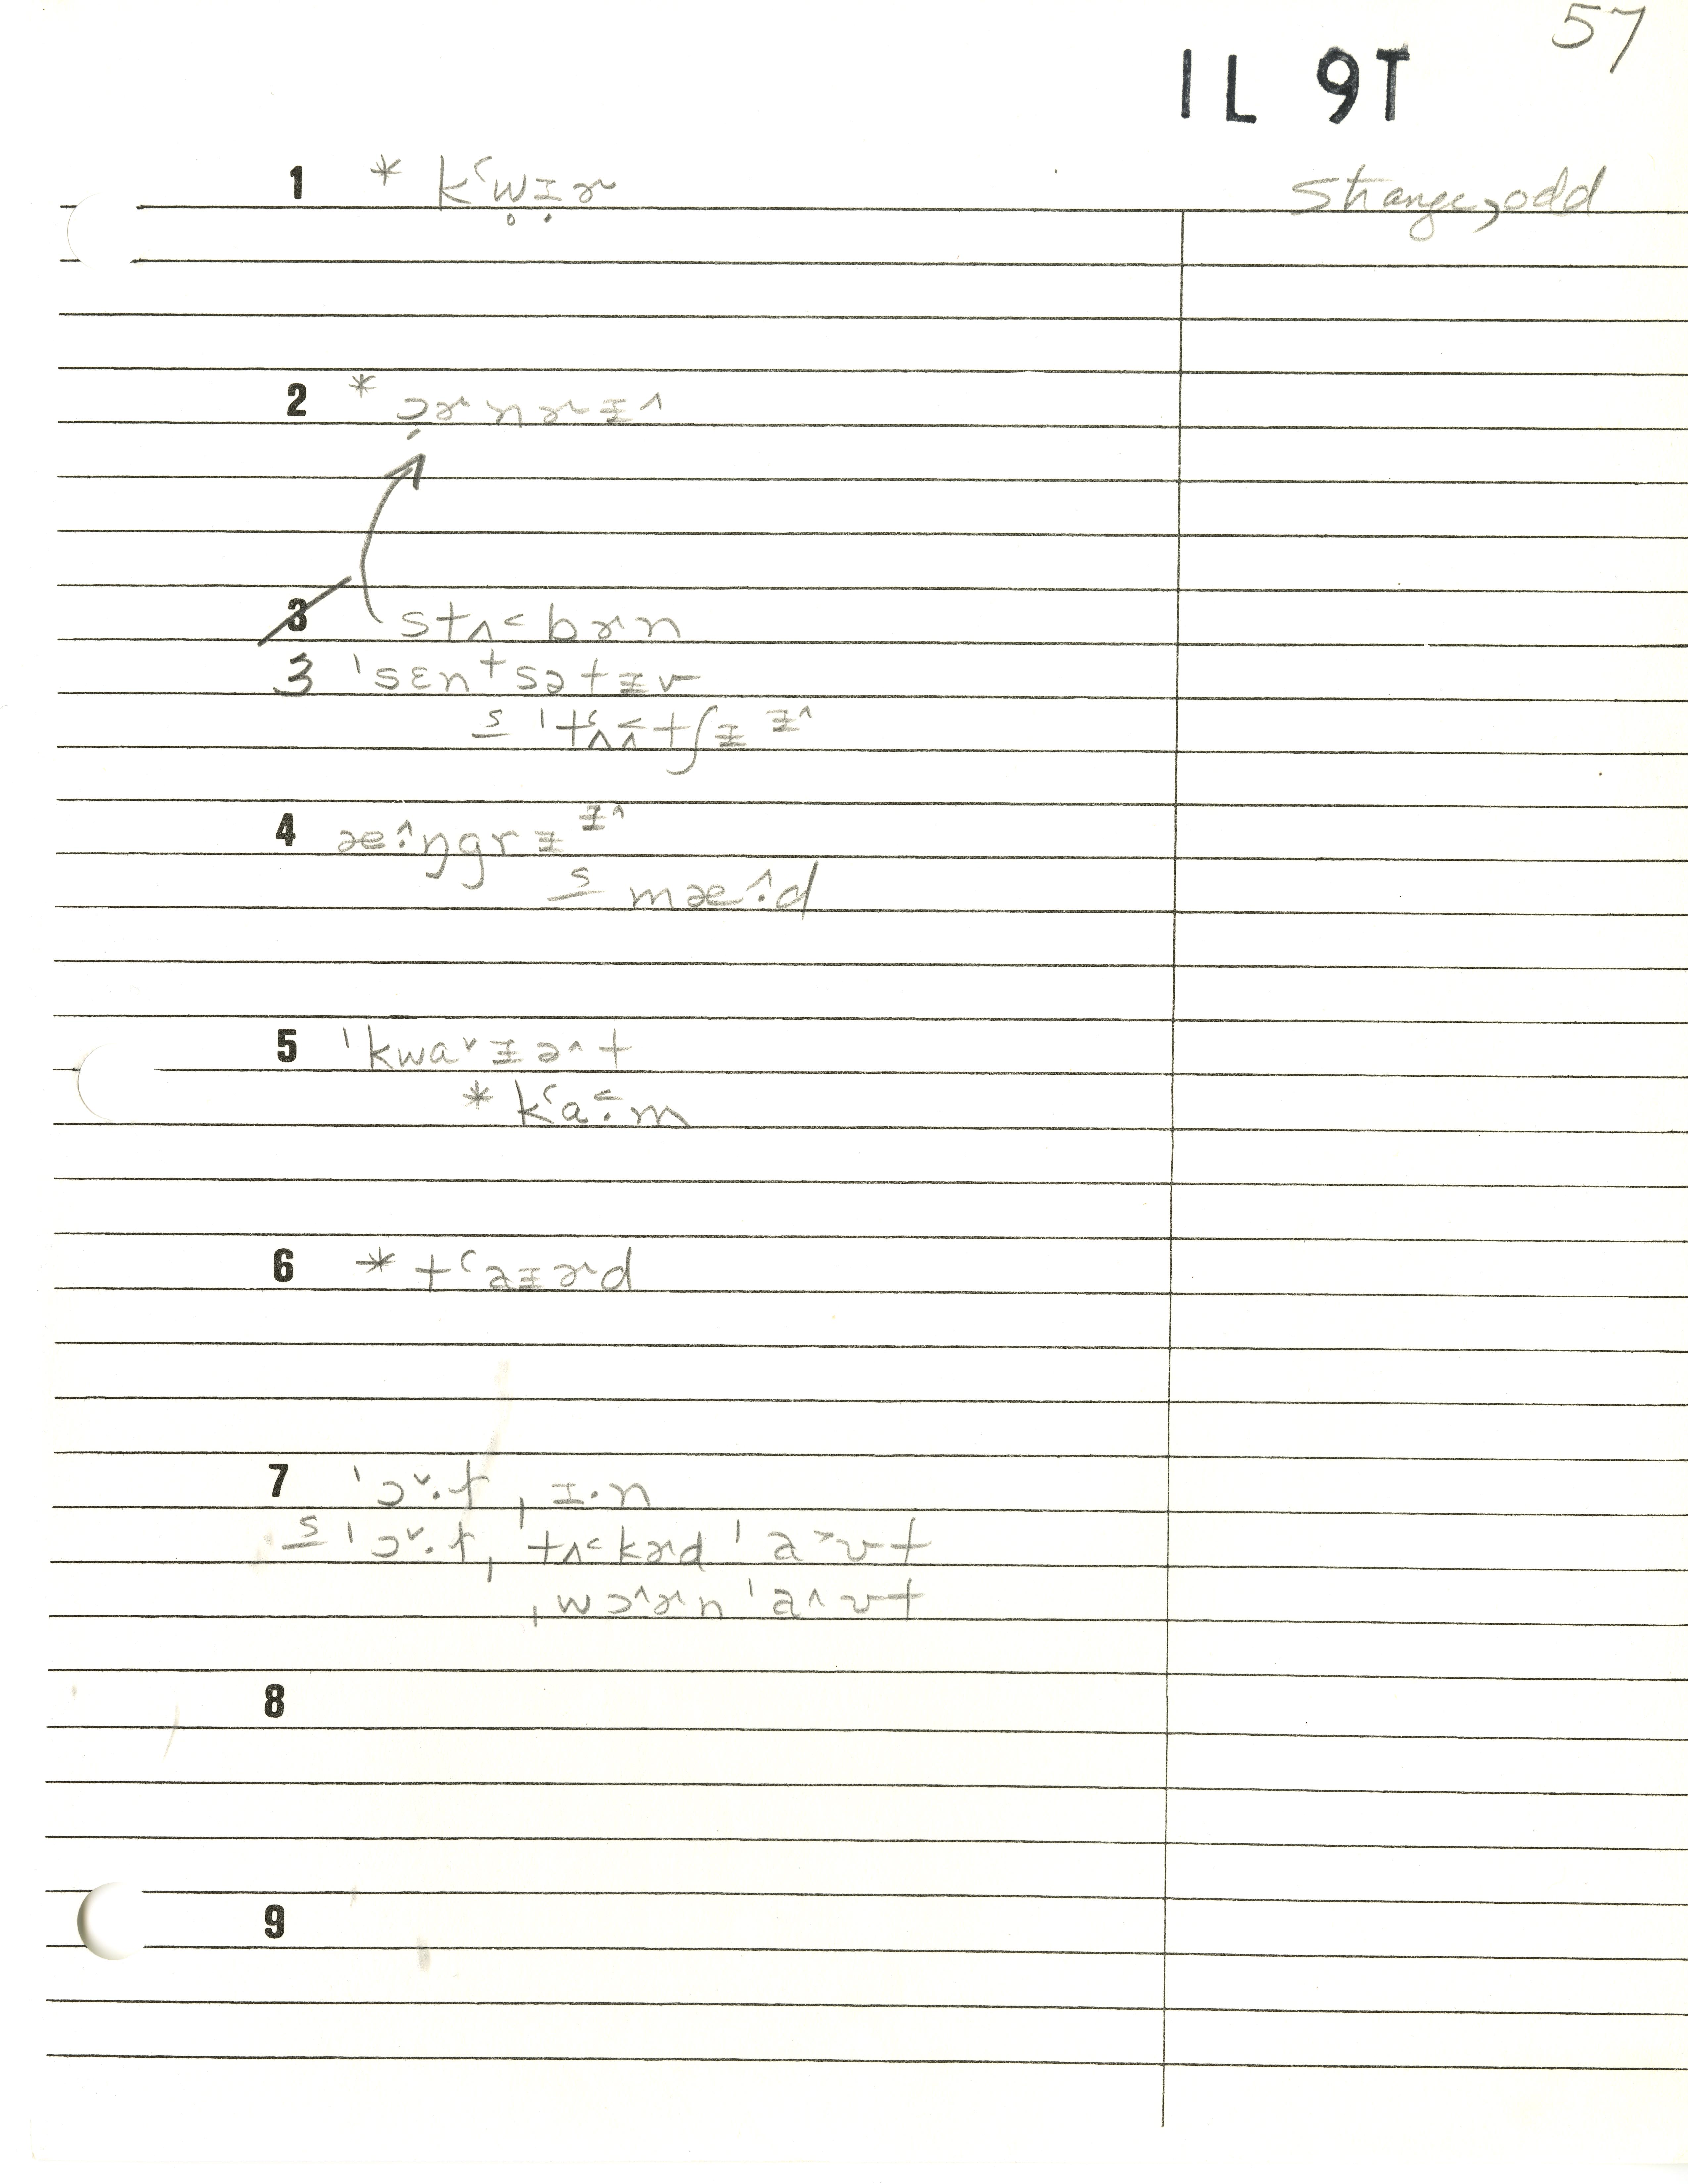 57
1L 9T
1 * kʻw̥ɪ̣ɚ strange, odd
2 * ɔ̣ɚnɚɨ^
3 stʌ˂bɚn
3 ˈsɛnᵗsətɨv
s ˈtʻʌ˂ʌtʃɨ ɨ^
4 æ^:ŋgrɨ ɨ^
s mæ^:d
5 ˈkwa˅ɨə^t
* kʻa˂:m
6 * tʻaɨɚd
7 ˈɔ˅.ɫ ˌɪ.n
s ˈɔ˅.ɫ ˌtʌ˂kɚd ˈa˃ʊt
ˌwɔ^ɚn ˈa^ʊt
8
9